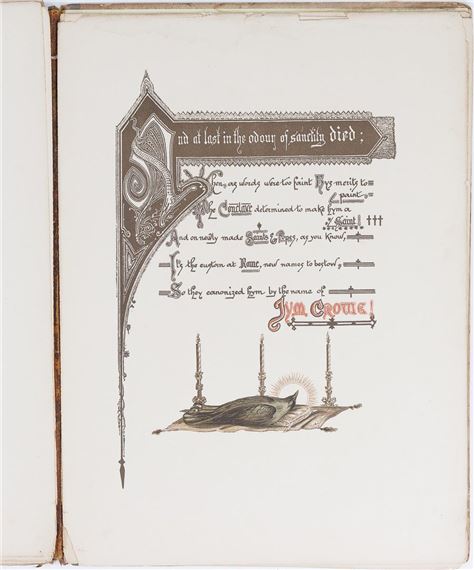 And at last in the odour of sanctity died;
When, as words were too faint Hys merits to
paint,
The Conclave determined to make hym a
Saint!
And on newly made Saints & Popes, as you know,
It's the custom at Rome, new names to bestow,
So they canonized hym by the name of
Jym Crowe!